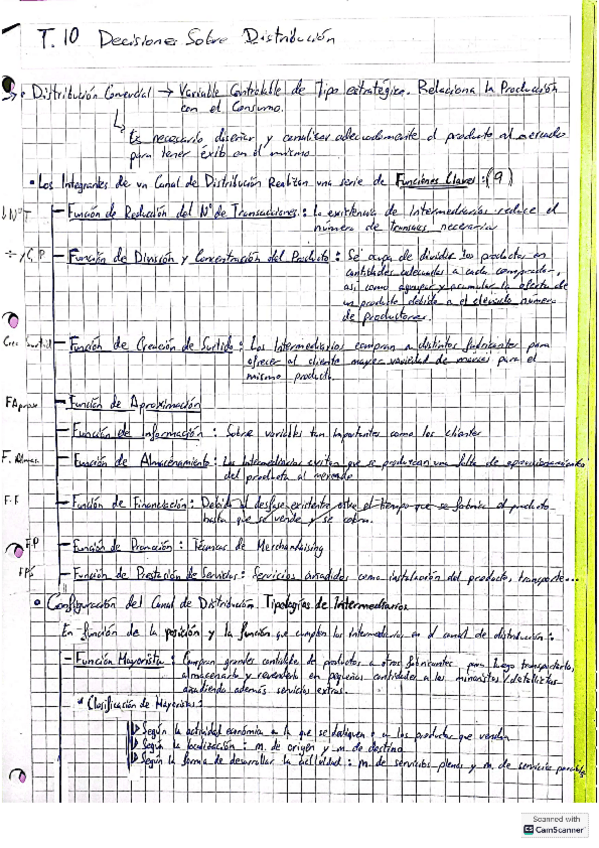 T.10 Decisiones Sobre Distribución
• Distribución Comercial → Variable Controlable de Tipo estratégico. Relaciona la Producción
con el Consumo.
Es necesario diseñar y canalizar adecuadamente el producto al mercado
para tener éxito en el mismo
• Los Integrantes de un Canal de Distribución Realizan una serie de Funciones Claves: (9)
↓NºT – Función de Reducción del Nº de Transacciones: La existencia de Intermediarios reduce el
número de necesarias
– Función de División y Concentración del Producto: Se ocupa de dividir los productos en
cantidades adecuadas a cada comprador,
así como agrupar y acumular la oferta de
un producto debido a el elevado número
de productores.
– Función de Creación de Surtido: Los Intermediarios compran a distintos fabricantes para
ofrecer al cliente mayor variedad de marcas para el
mismo producto
FAprox – Función de Aproximación
– Función de Información: Sobre variables tan importantes como los clientes
F. Almac. – Función de Almacenamiento: Los Intermediarios evitan que se produzcan una falta de
del producto al mercado
F.F – Función de Financiación: Debido al desfase existente entre el tiempo que se fabrica el producto
hasta que se vende y se cobra.
FP – Función de Promoción: Técnicas de Merchandising
FPS – Función de Prestación de Servicios: Servicios añadidos como instalación del producto, transporte...
• Configuración del Canal de Distribución. Tipologías de Intermediarios
En función de la posición y la función que cumplen los intermediarios en el canal de distribución:
– Función Mayorista: Compran grandes cantidades de productos a otros fabricantes para luego transportarlo,
almacenarlo y revenderlo en pequeñas cantidades a los minoristas/detallistas
añadiendo además servicios extras.
* Clasificación de Mayoristas:
Según la actividad económica a la que se dediquen o a los productos que vendan
Según la localización: m. de origen y m. de destino
Según la forma de desarrollar la actividad: m. de servicios plenos y m. de servicios parciales
Scanned with
CamScanner